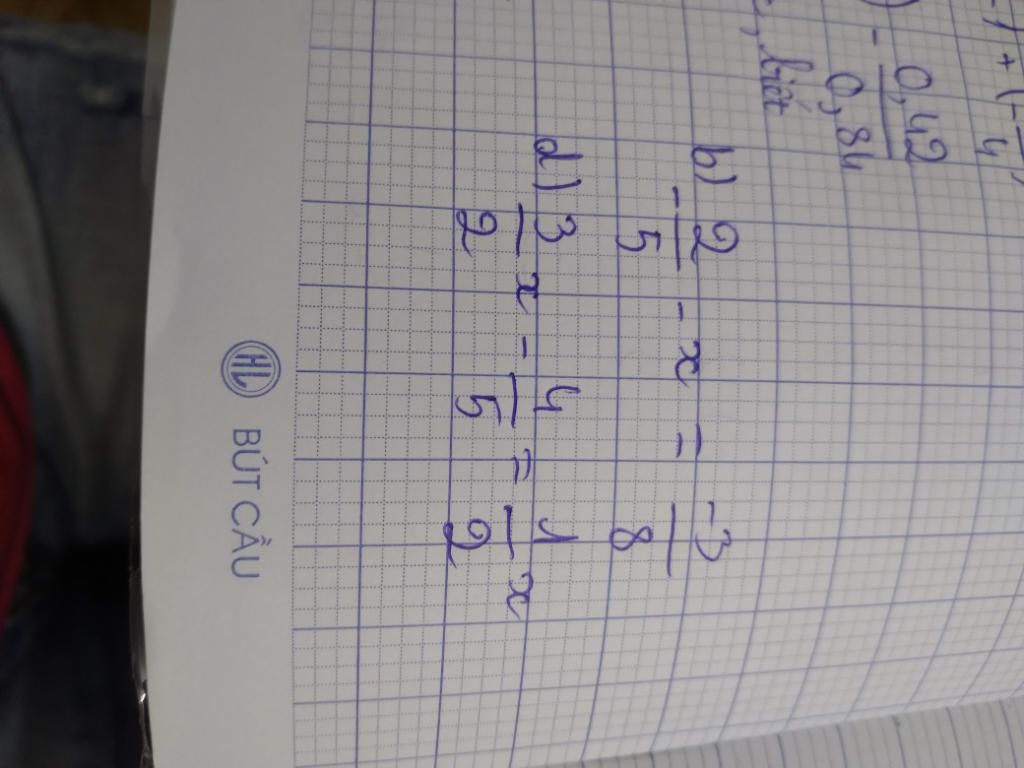 ) + (-—4)
) - 0,42/0,84
, biết
b) -2/5 - x = -3/8
d) 3/2 x - 4/5 = 1/2 x
HL BÚT CẦU